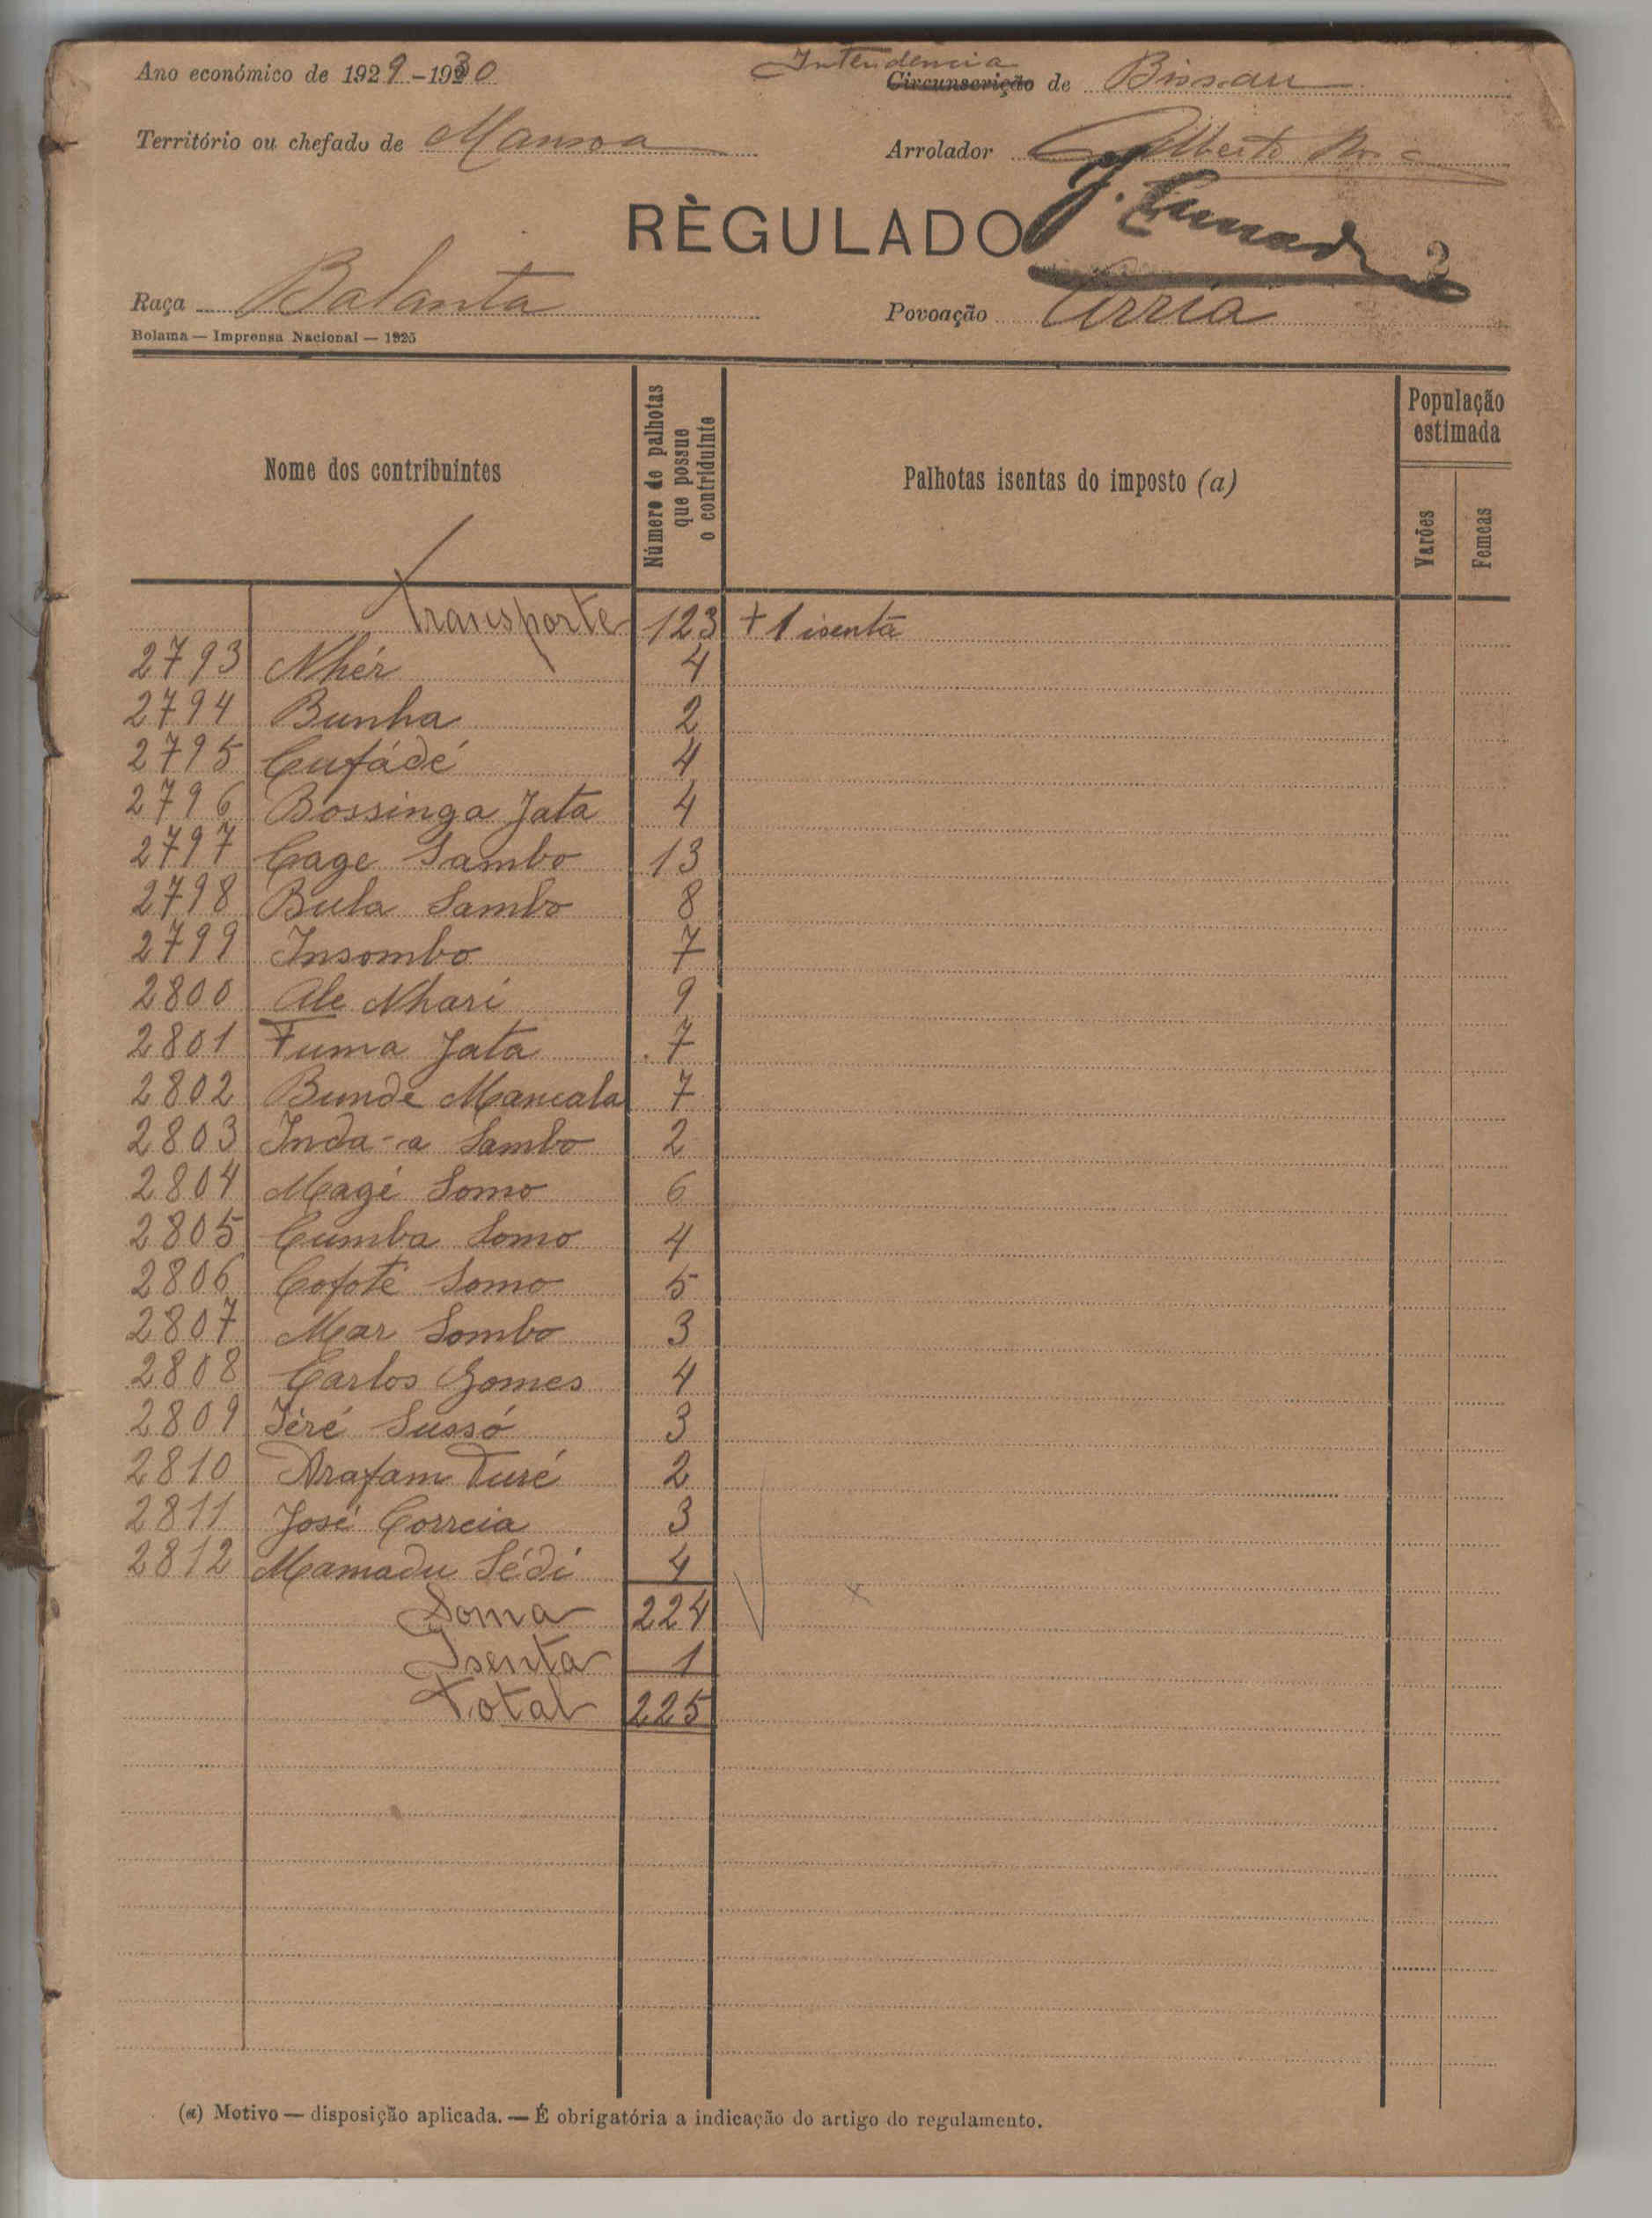 Ano económico de 1929-1930
Intendencia
Circunscrição de Bissau
Território ou chefado de Mansoa
Arrolador Alberto
RÈGULADO
2
Raça Balanta
Povoação Urria
Bolama — Imprensa Nacional — 1925
Nome dos contribuintes
Número de palhotas que possue o contriduinte
Palhotas isentas do imposto (a)
População estimada
Varões
Femeas
Transporte 123 + 1 isenta
2793 Nhér 4
2794 Bunha 2
2795 Cufádé 4
2796 Bossinga Jata 4
2797 Cage Sambo 13
2798 Bula Sambo 8
2799 Insombo 7
2800 Ale Nhari 9
2801 Fuma Jata 7
2802 Bunde Mancala 7
2803 Inda-a Sambo 2
2804 Magé Somo 6
2805 Cumba Somo 4
2806 Cofoté Somo 5
2807 Mar Sombo 3
2808 Carlos Gomes 4
2809 Séré Sussó 3
2810 Arafam Turé 2
2811 José Correia 3
2812 Mamadu Sédi 4
Soma 224
Isenta 1
Total 225
(a) Motivo — disposição aplicada. — É obrigatória a indicação do artigo do regulamento.